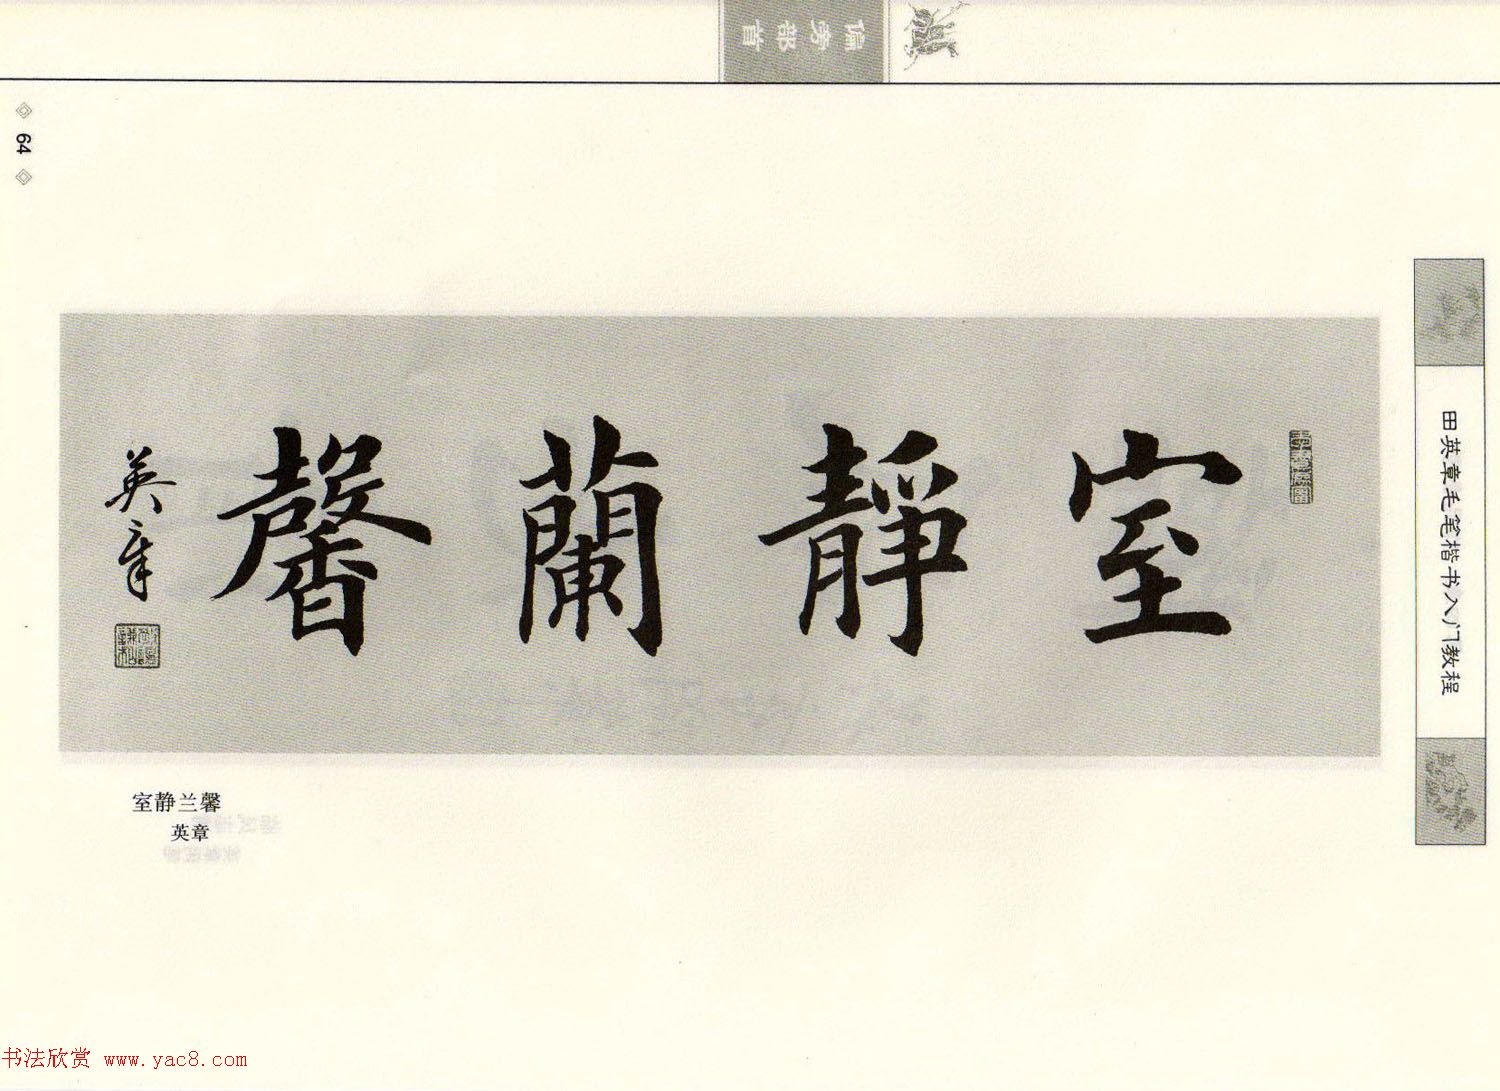 偏旁部首
64
室靜蘭馨
英章
田英章毛笔楷书入门教程
室静兰馨
英章
书法欣赏 www.yac8.com